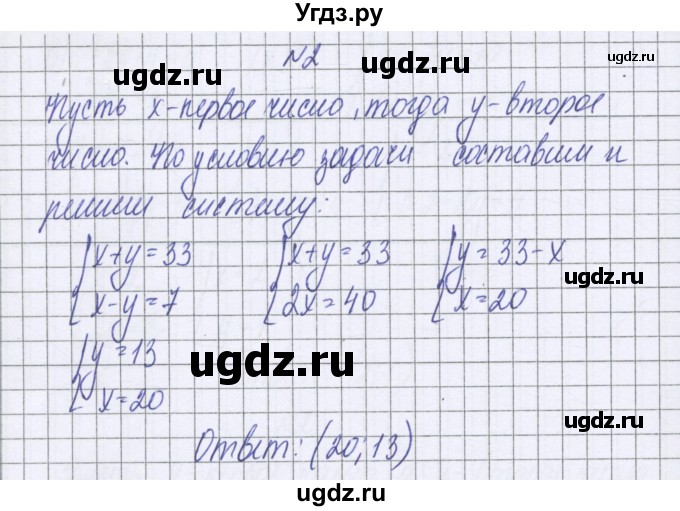 Угдз.ру
ugdz.ru ugdz.ru
N2
Пусть x-первое число, тогда y-второе
число. По условию задачи составим и
решим систему:
ugdz.ru
{x+y=33 {x+y=33 {y=33-x
{x-y=7 {2x=40 {x=20
ugdz.ru
{y=13
{x=20
ugdz.ru ugdz.ru
Ответ: (20;13)
ugdz.ru